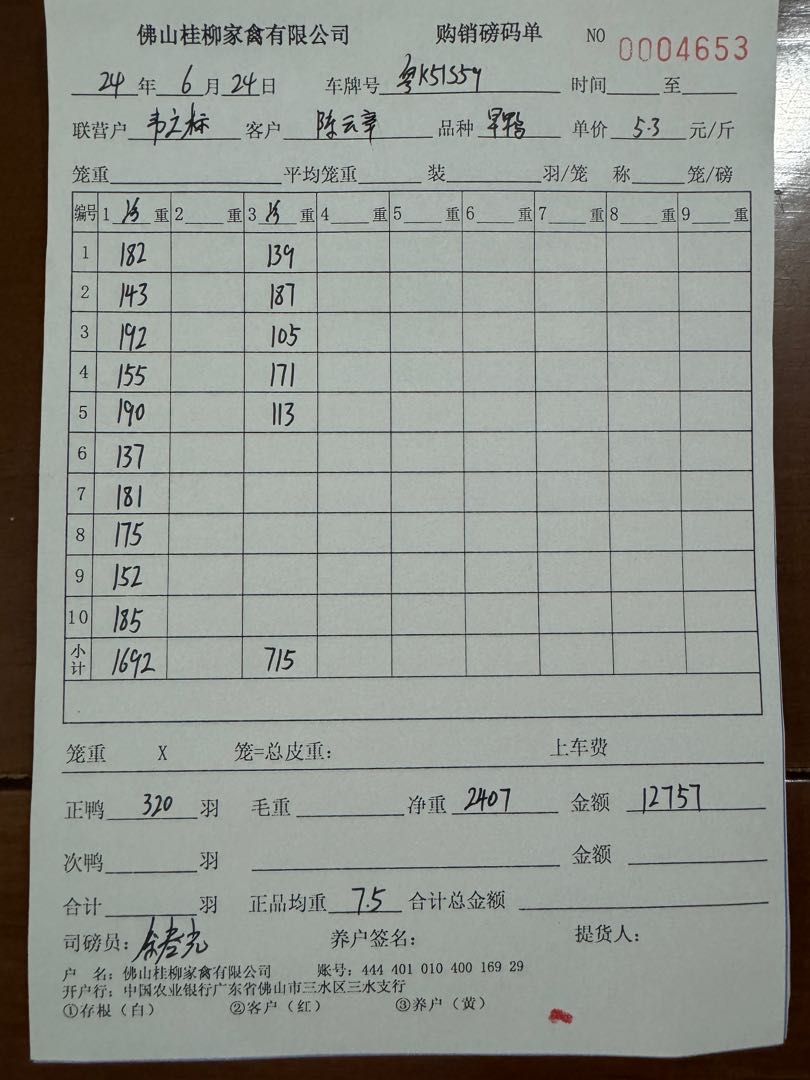 佛山桂柳家禽有限公司 购销磅码单 NO 0004653
24年6月24日 车牌号 粤K51S59 时间 至
联营户 韦立标 客户 陈云章 品种 旱鸭 单价 5.3 元/斤
笼重 平均笼重 装 羽/笼 称 笼/磅
编号 1 重 2 重 3 重 4 重 5 重 6 重 7 重 8 重 9 重
1 182 139
2 143 187
3 192 105
4 155 171
5 190 113
6 137
7 181
8 175
9 152
10 185
小计 1692 715
笼重 X 笼=总皮重: 上车费
正鸭 320 羽 毛重 净重 2407 金额 12757
次鸭 羽 金额
合计 羽 正品均重 7.5 合计总金额
司磅员: 养户签名: 提货人:
户 名: 佛山桂柳家禽有限公司 账号: 444 401 010 400 169 29
开户行: 中国农业银行广东省佛山市三水区三水支行
①存根(白) ②客户(红) ③养户(黄)